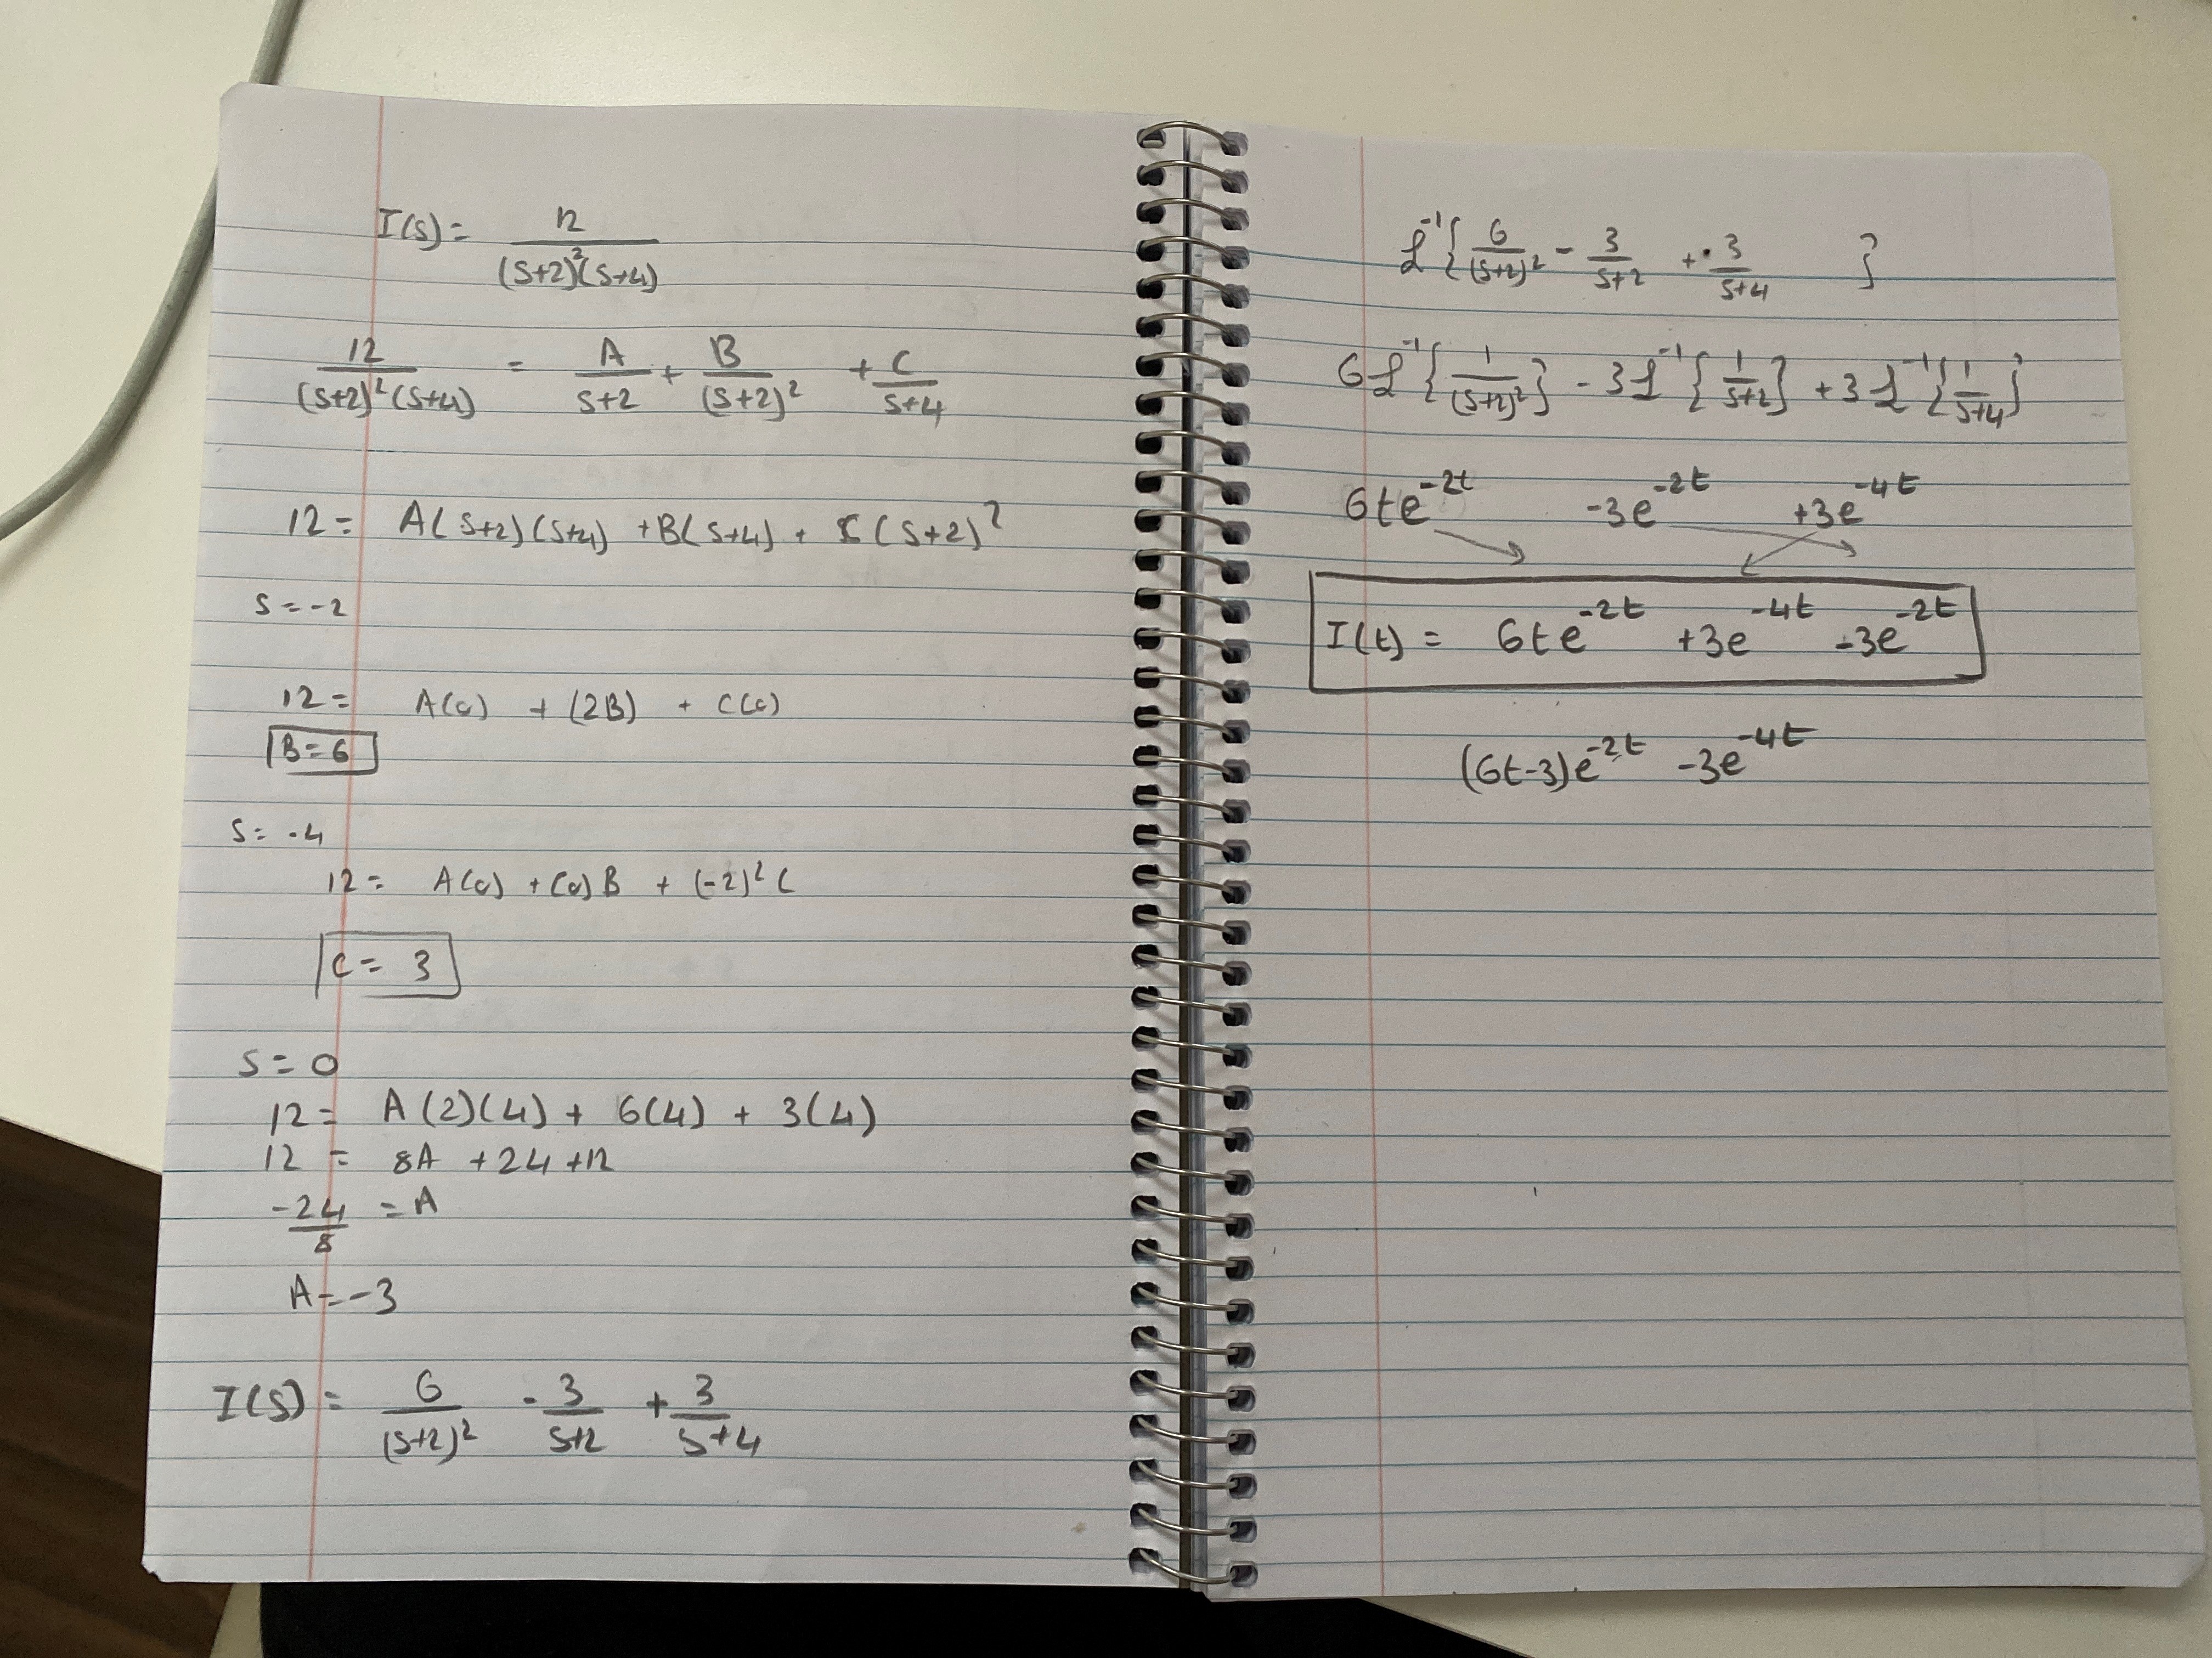 I(s) = 12/((s+2)²(s+4))
12/((s+2)²(s+4)) = A/(s+2) + B/(s+2)² + C/(s+4)
12 = A(s+2)(s+4) + B(s+4) + C(s+2)²
s = -2
12 = A(0) + (2B) + C(0)
B = 6
s = -4
12 = A(0) + (0)B + (-2)² C
C = 3
s = 0
12 = A(2)(4) + 6(4) + 3(4)
12 = 8A + 24 + 12
-24/8 = A
A = -3
I(s) = 6/(s+2)² - 3/(s+2) + 3/(s+4)
ℒ⁻¹{6/(s+2)² - 3/(s+2) + 3/(s+4)}
6ℒ⁻¹{1/(s+2)²} - 3ℒ⁻¹{1/(s+2)} + 3ℒ⁻¹{1/(s+4)}
6te^(-2t) -3e^(-2t) +3e^(-4t)
I(t) = 6te^(-2t) +3e^(-4t) -3e^(-2t)
(6t-3)e^(-2t) -3e^(-4t)